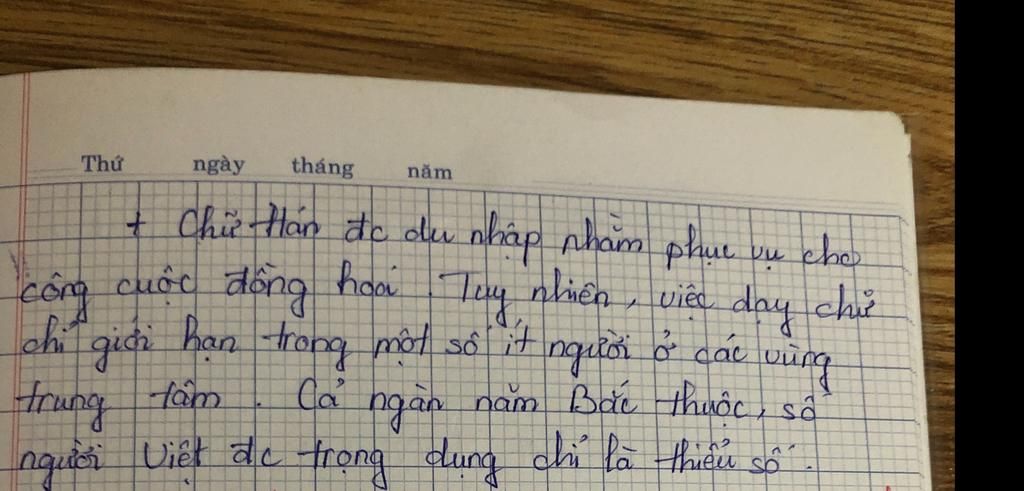 Thứ ngày tháng năm
+ Chữ Hán đc du nhập nhằm phục vụ cho
công cuộc đồng hoá. Tuy nhiên, việc dạy chữ
chỉ giới hạn trong một số ít người ở các vùng
trung tâm. Cả ngàn năm Bắc thuộc, số
người Việt đc trọng dụng chỉ là thiểu số.